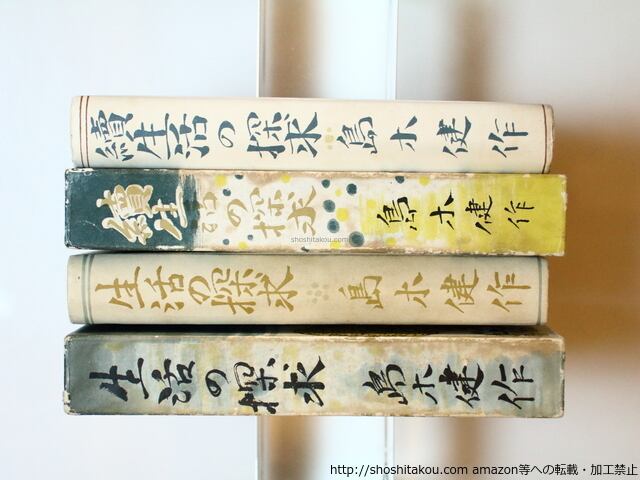 續生活の探求 島木健作
續生活の探求 島木健作
shoshitakou.com
生活の探求 島木健作
生活の探求 島木健作
http://shoshitakou.com amazon等への転載・加工禁止